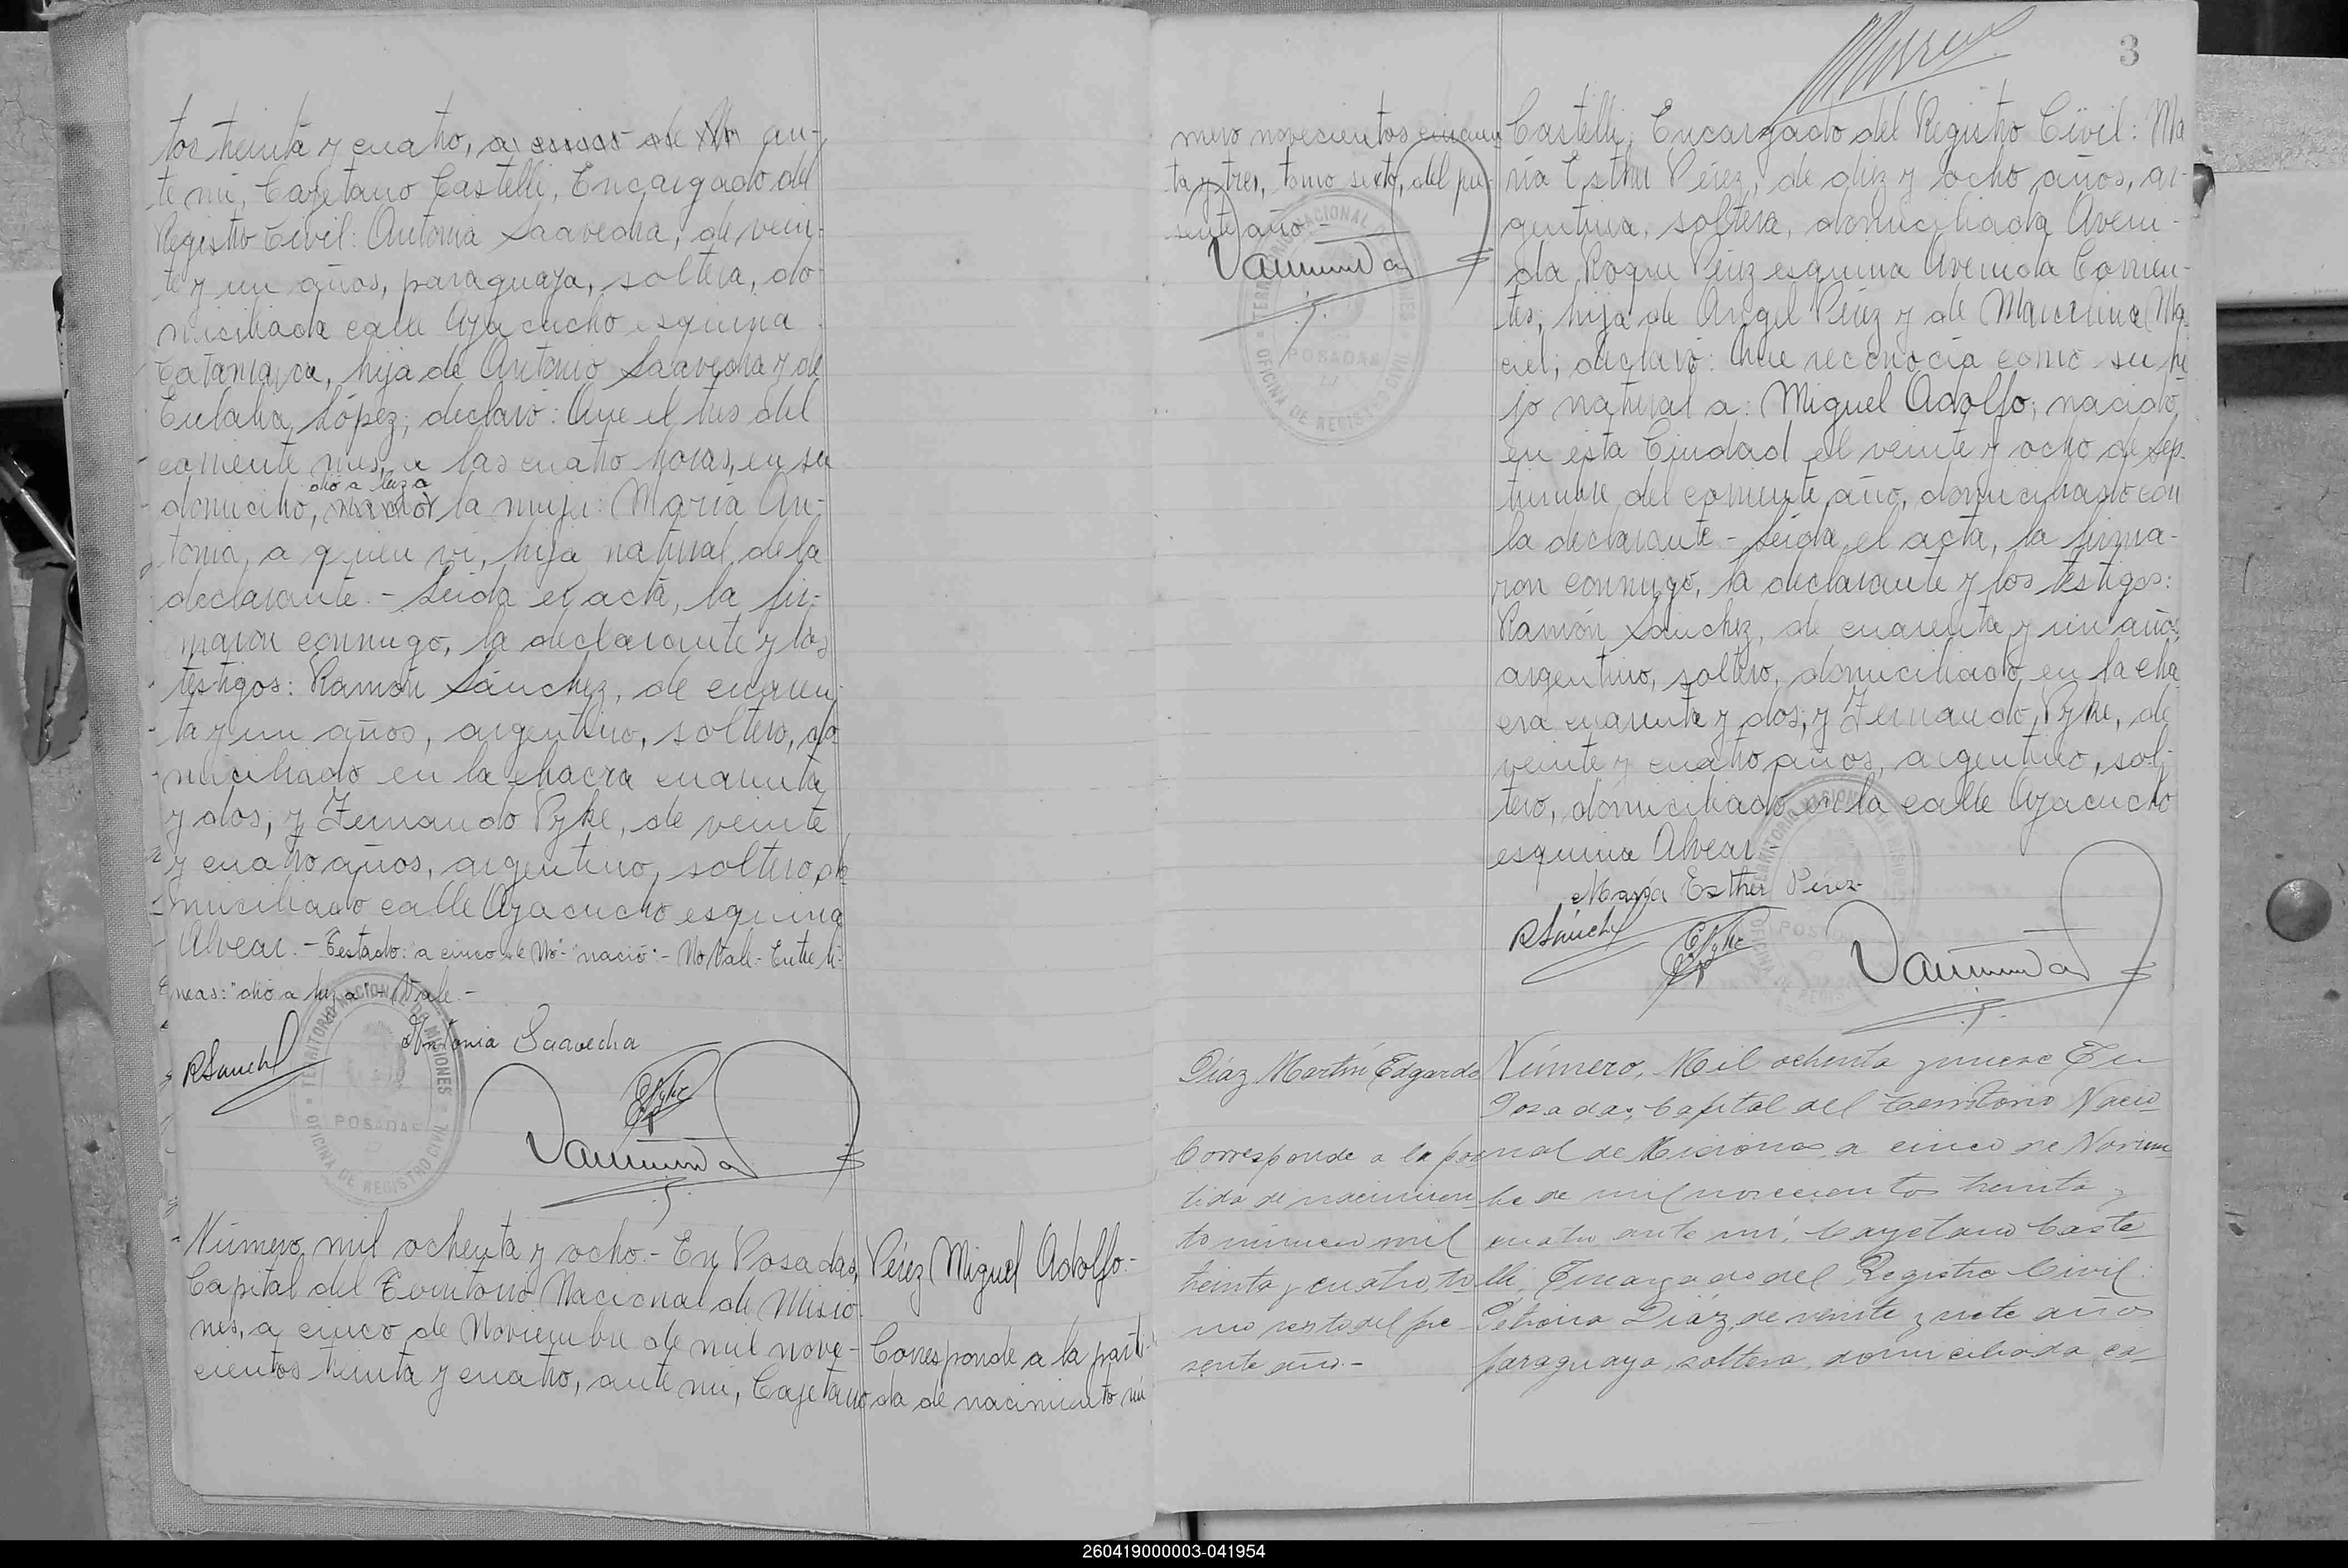 tos treinta y cuatro, a cinco de No an-
te mí, Cayetano Castelli, Encargado del
Registro Civil: Antonia Saavedra, de vein-
te y un años, paraguaya, soltera, do-
miciliada calle Ayacucho esquina
Catamarca, hija de Antonio Saavedra y de
Eulalia López; declaró: Que el tres del
corriente mes, a las cuatro horas, en su
dió a luz a
domicilio, nació la mujer: María An-
tonia, a quien vi, hija natural de la
declarante.- Leida el acta, la fir-
maron conmigo, la declarante y los
testigos: Ramón Sánchez, de cuaren-
ta y un años, argentino, soltero, do-
miciliado en la chacra cuarenta
y dos; y Fernando Pyke, de veinte
y cuatro años, argentino, soltero, do-
miciliado calle Ayacucho esquina
Alvear.- Testado: "a cinco de No"- "nació"- No Vale- Entre lí-
neas: "dió a luz a"- Vale.-
Antonia Saavedra
RSanchez
EPyke
POSADAS
TERRITORIO NACIONAL DE MISIONES
OFICINA DE REGISTRO CIVIL
Número mil ochenta y ocho.- En Posadas,
Capital del Territorio Nacional de Misio-
nes, a cinco de Noviembre de mil nove-
cientos treinta y cuatro, ante mí, Cayetano
Pérez Miguel Adolfo.-
Corresponde a la parti-
da de nacimiento nú
3
mero novecientos cincuen
ta y tres, tomo sexto, del pre-
sente año.-
TERRITORIO NACIONAL DE MISIONES
POSADAS
OFICINA DE REGISTRO CIVIL
Castelli, Encargado del Registro Civil: Ma
ría Esther Pérez, de diez y ocho años, ar-
gentina, soltera, domiciliada Aveni-
da Roque Pérez esquina Avenida Corrien-
tes, hija de Angel Pérez y de Ma
ciel; declaró: Que reconocía como su hi
jo natural a: Miguel Adolfo, nacido
en esta Ciudad el veinte y ocho de Sep-
tiembre del corriente año, domiciliado con
la declarante- Leida el acta, la firma-
ron conmigo, la declarante y los testigos:
Ramón Sánchez, de cuarenta y un años,
argentino, soltero, domiciliado en la cha
cra cuarenta y dos; y Fernando Pyke, de
veinte y cuatro años, argentino, sol-
tero, domiciliado en la calle Ayacucho
esquina Alvear
María Esther Pérez
RSánchez
EPyke
Díaz Martín Edgardo
Corresponde a la par
tida de nacimien
to número mil
treinta y cuatro, to
mo sexto del pre
sente año.-
Número, Mil ochenta y nueve En
Posadas, Capital del Territorio Nacio
nal de Misiones, a cinco de Noviem
bre de mil novecientos treinta y
cuatro, ante mí, Cayetano Caste
lli, Encargado del Registro Civil:
Petrona Díaz, de veinte y siete años
paraguaya, soltera, domiciliada ca-
260419000003-041954